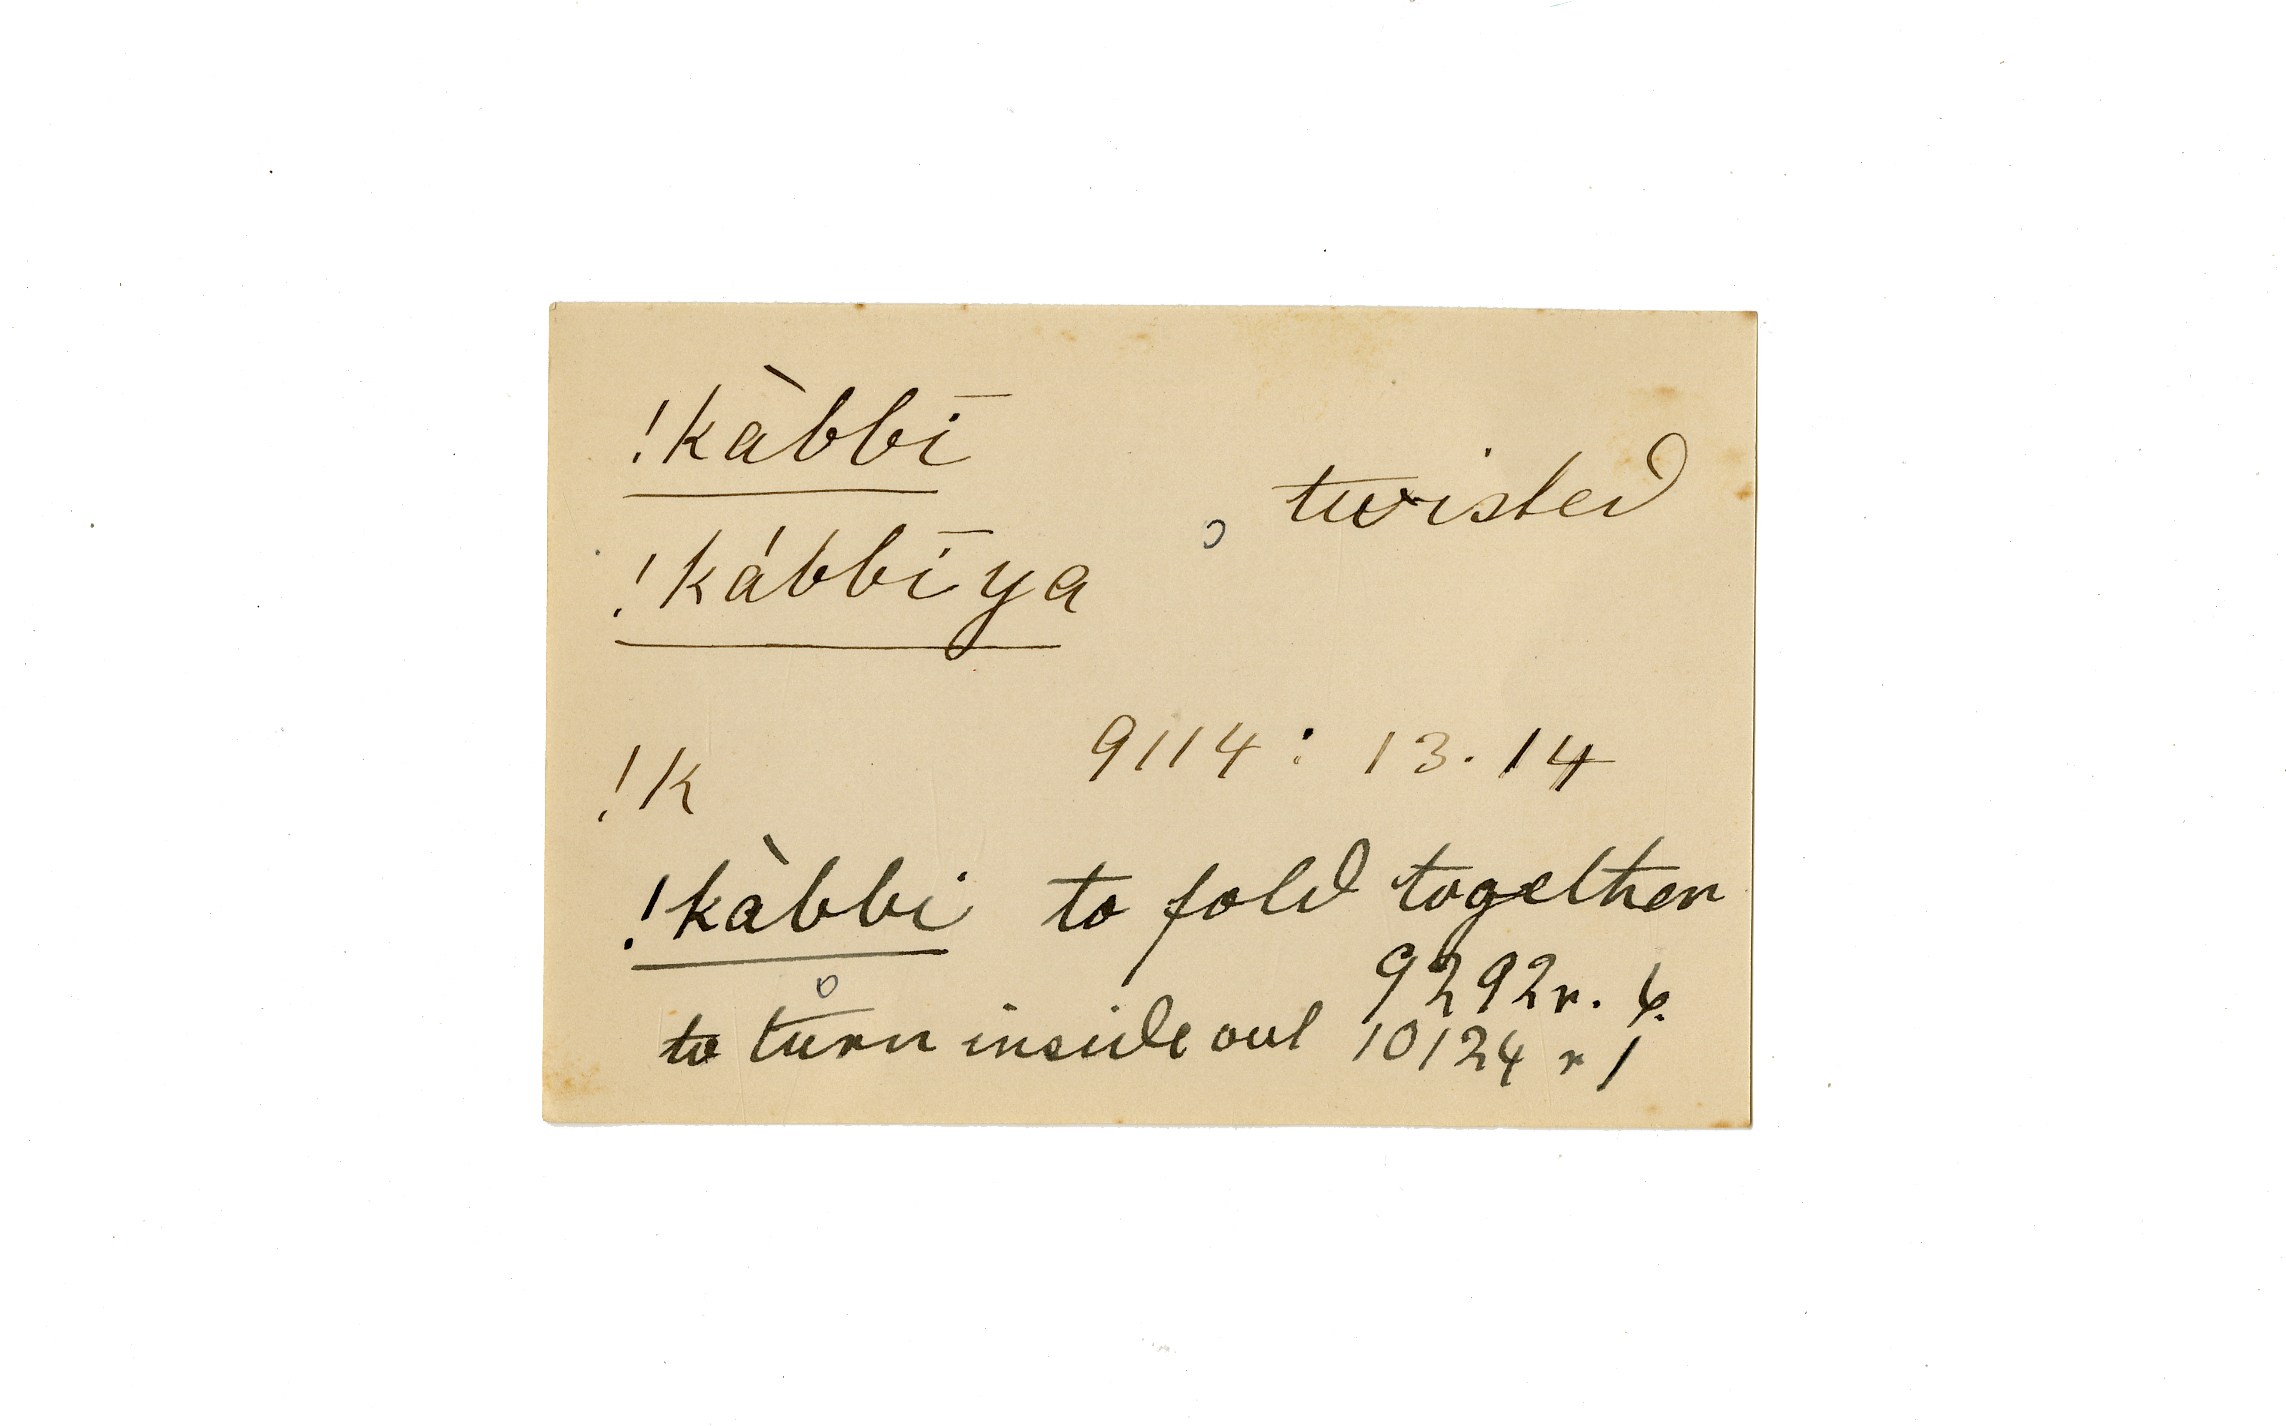 !kàbbī
, twisted
!kábbīya
9114: 13.14
!k
!kàbbi to fold together
9292r. 6.
to turn inside out 10124 r 1